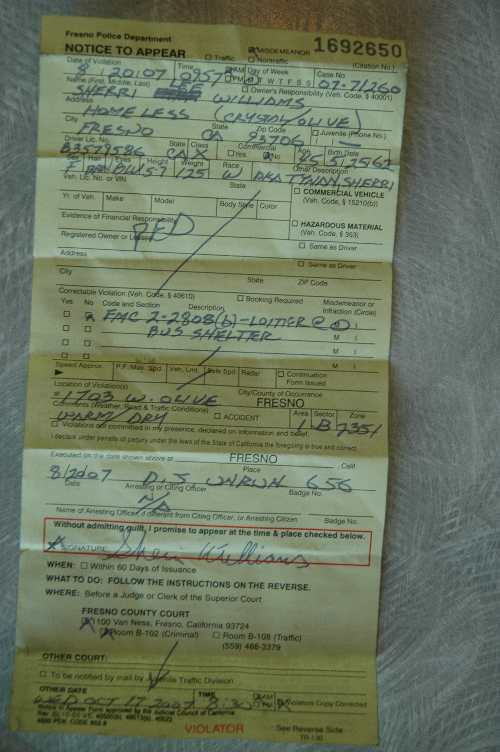 Fresno Police Department
NOTICE TO APPEAR ☐ Traffic ☒ MISDEMEANOR ☐ Nontraffic 1692650
(Citation No.)
Date of Violation Time AM PM Day of Week Case No.
8/20/07 0957 S M T W T F S 07-71260
Name (First, Middle, Last) ☐ Owner's Responsibility (Veh. Code, § 40001)
SHERRI WILLIAMS
Address
HOMELESS (CRYSTAL/OLIVE)
City State Zip Code ☐ Juvenile (Phone No.)
FRESNO CA 93706
Driver Lic. No. State Class Commercial Age Birth Date
B3579586 CA X ☐ Yes ☒ No 45 5/25/62
Sex Hair Eyes Height Weight Race Other Description
F BRN BLU 5-7 125 W AKA TYNAN, SHERRI
Veh. Lic. No. or VIN State
☐ COMMERCIAL VEHICLE
(Veh. Code, § 15210(b))
Yr. of Veh. Make Model Body Style Color
☐ HAZARDOUS MATERIAL
(Veh. Code, § 353)
Evidence of Financial Responsibility
PED
Registered Owner or Lessee ☐ Same as Driver
Address ☐ Same as Driver
City State ZIP Code
Correctable Violation (Veh. Code, § 40610) ☐ Booking Required Misdemeanor or
Yes No Code and Section Description Infraction (Circle)
☐ ☒ FMC 2-2808(b)-LOITER @ M I
☐ ☐ BUS SHELTER M I
☐ ☐ M I
☐ ☐ M I
Speed Approx. P.F./Max. Spd. Veh. Lmt. Safe Spd. Radar ☐ Continuation
Form Issued
Location of Violation(s) City/County of Occurrence
at 1703 W. OLIVE FRESNO
Comments (Weather, Road & Traffic Conditions) ☐ ACCIDENT Area Sector Zone
WARM/DRY 1 B 7351
☐ Violations not committed in my presence, declared on information and belief.
I declare under penalty of perjury under the laws of the State of California the foregoing is true and correct.
Executed on the date shown above at FRESNO , Calif.
Place
8/20/07 D.J. UNRUH 656
Date Arresting or Citing Officer Badge No.
N/A
Name of Arresting Officer, if different from Citing Officer, or Arresting Citizen Badge No.
Without admitting guilt, I promise to appear at the time & place checked below.
X SIGNATURE Sherri Williams
WHEN: ☐ Within 60 Days of Issuance
WHAT TO DO: FOLLOW THE INSTRUCTIONS ON THE REVERSE.
WHERE: Before a Judge or Clerk of the Superior Court
FRESNO COUNTY COURT
☒ 1100 Van Ness, Fresno, California 93724
☒ Room B-102 (Criminal) ☐ Room B-108 (Traffic)
(559) 488-3379
OTHER COURT:
☐ To be notified by mail by Juvenile Traffic Division
OTHER DATE TIME AM PM
WED OCT 17 2007 8:30 Violators Copy Corrected
Notice to Appear Form approved by the Judicial Council of California
See Reverse Side
VIOLATOR TR-130